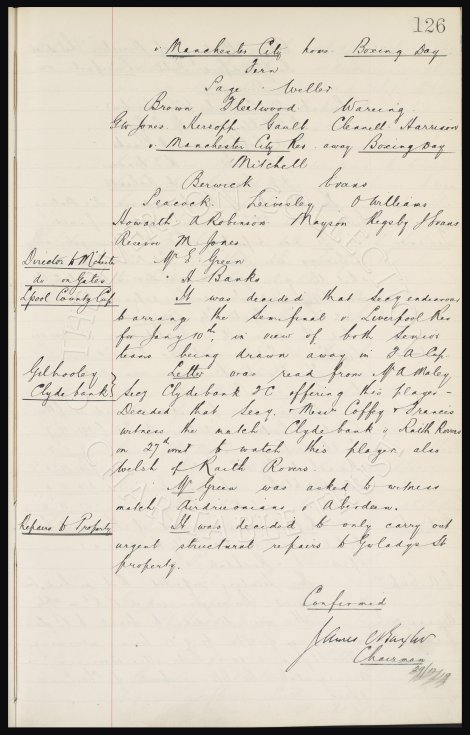 126
v. Manchester City home Boxing Day
Fern
Page Weller
Brown Fleetwood Wareing
Geo Jones Kirsopp Gault Clennell Harrison
v. Manchester City Res. away Boxing Day
Mitchell
Berwick Evans
Peacock Leivesley O Williams
Howarth A Robinson Mayson Rigsby J Evans
Reserve M. Jones
Director to M'chester Mr E. Green
do on Gates " A Banks
Lpool County Cup It was decided that Secy endeavour
to arrange the Semi final v Liverpool Res
for Jany 10th, in view of both senior
teams being drawn away in F A Cup.
Gilhooley Letter was read from Mr A Maley
Clydebank Secy Clydebank F C offering this player -
Decided that Secy. & Messrs Coffey & Francis
witness the match Clydebank v Raith Rovers
on 27th inst to watch this player, also
Welsh of Raith Rovers.
Mr Green was asked to witness
match Airdrieonians v Aberdeen.
Repairs to Property It was decided to only carry out
urgent structural repairs to Gwladys St
property.
Confirmed
James C Baxter
Chairman
29/12/19